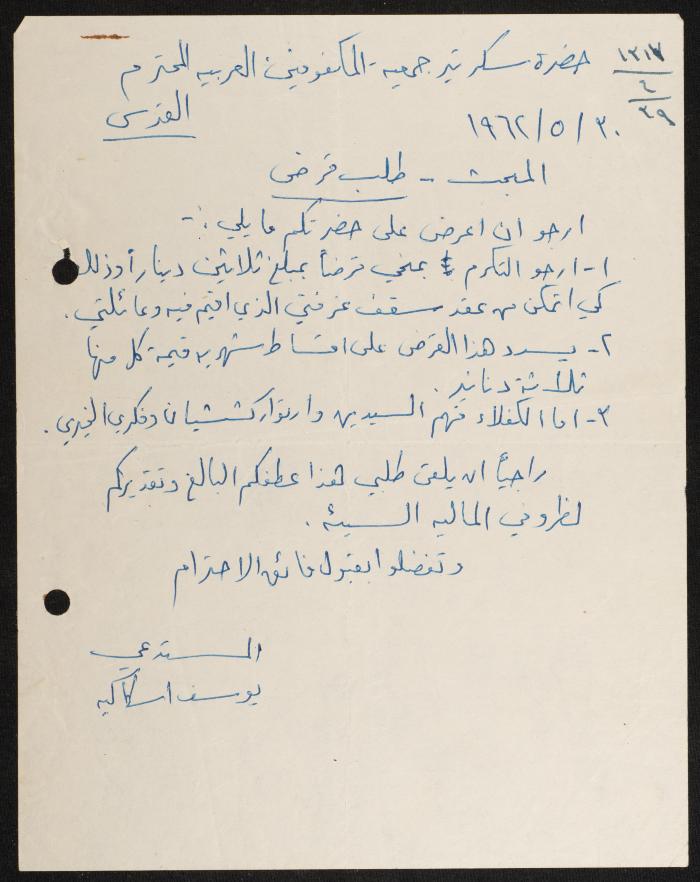 ١٢١٧
٤
٣٩
حضرة سكرتير جمعية المكفوفين العربيه المحترم
القدس
٣٠ / ٥ / ١٩٦٢
المبحث - طلب قرض
ارجو ان اعرض على حضرتكم ما يلي :-
١- ارجو التكرم بمنحي قرضاً بمبلغ ثلاثين ديناراً وذلك
كي اتمكن من عقد سقف غرفتي الذي اقيم فيه وعائلتي .
٢- يسدد هذا القرض على اقساط شهريه قيمة كل منها
ثلاثة دنانير .
٣- اما الكفلاء فهم السيدين وارتوار كششيان وفكري الخيري .
راجياً ان يلقى طلبي هذا عطفكم البالغ وتقديركم
لظروفي الماليه السيئه .
وتفضلوا بقبول فائق الاحترام
المستدعي
يوسف اسكاكيه